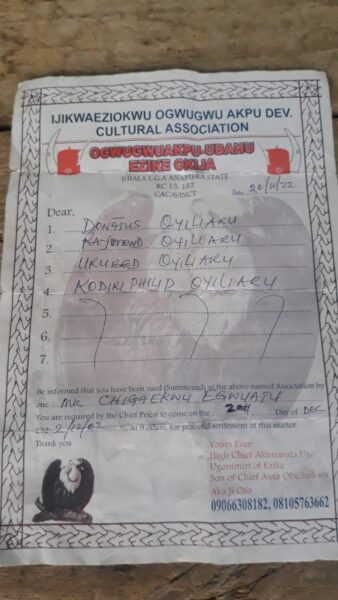 IJIKWAEZIOKWU OGWUGWU AKPU DEV.
CULTURAL ASSOCIATION
OGWUGWUAKPU-UBAHU
EZIKE OKIJA
IHIALA L.G.A ANAMBRA STATE
RC 13, 187
CAC/HINCT
Date 20/11/22
Dear,
1. DONATUS OYILIARU
2. RAYMOND OYILIARU
3. OYILIARU
4. KODIRI PHILIP OYILIARU
5.
6.
7.
Be informed that you have been sued (Summoned) at the above named Association by
one MR CHIGAEKWU EGWUATU
You are required by the Chief Priest to come on the Day of DEC
202 2/12/02 At 9.00am, for peaceful settlement of this matter.
Thank you
Yours Ever
High Chief Akunarata Ugo
Ugommiri of Ezike
Son of Chief Asaa Obichukwu
Aka Ji Oto
09066308182, 08105763662